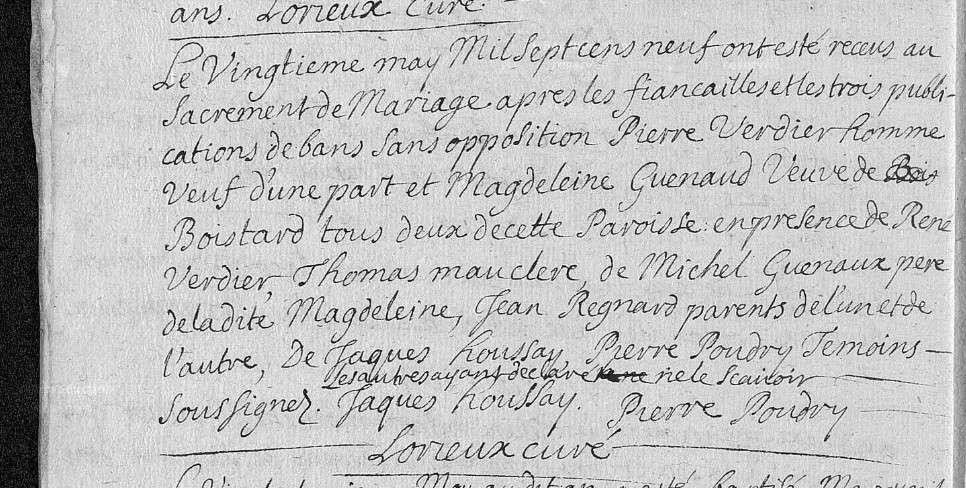 ans. Lorieux Curé.
Le Vingtieme may Mil Sept cens neuf ont esté receus au
Sacrement de Mariage apres les fiancailles et les trois publi-
cations de bans sans opposition Pierre Verdier homme
Veuf d'une part et Magdeleine Guenaud Veuve de Bois
Boistard tous deux de cette Paroisse: en presence de René
Verdier, Thomas mauclerc, de Michel Guenaux pere
de la dite Magdeleine, Jean Regnard parents de l'un et de
l'autre, De Jaques houssay, Pierre Poudry Temoins –
les autres ayant declaré ne le scavoir
soussignez. Jaques houssay. Pierre Poudry
Lorieux curé